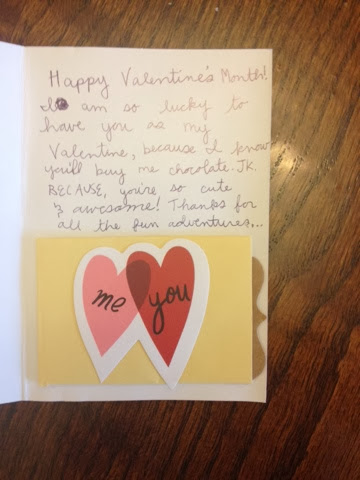 Happy Valentine's Month!
I am so lucky to
have you as my
Valentine, because I know
you'll buy me chocolate. JK.
BECAUSE, you're so cute
& awesome! Thanks for
all the fun adventures...
me you